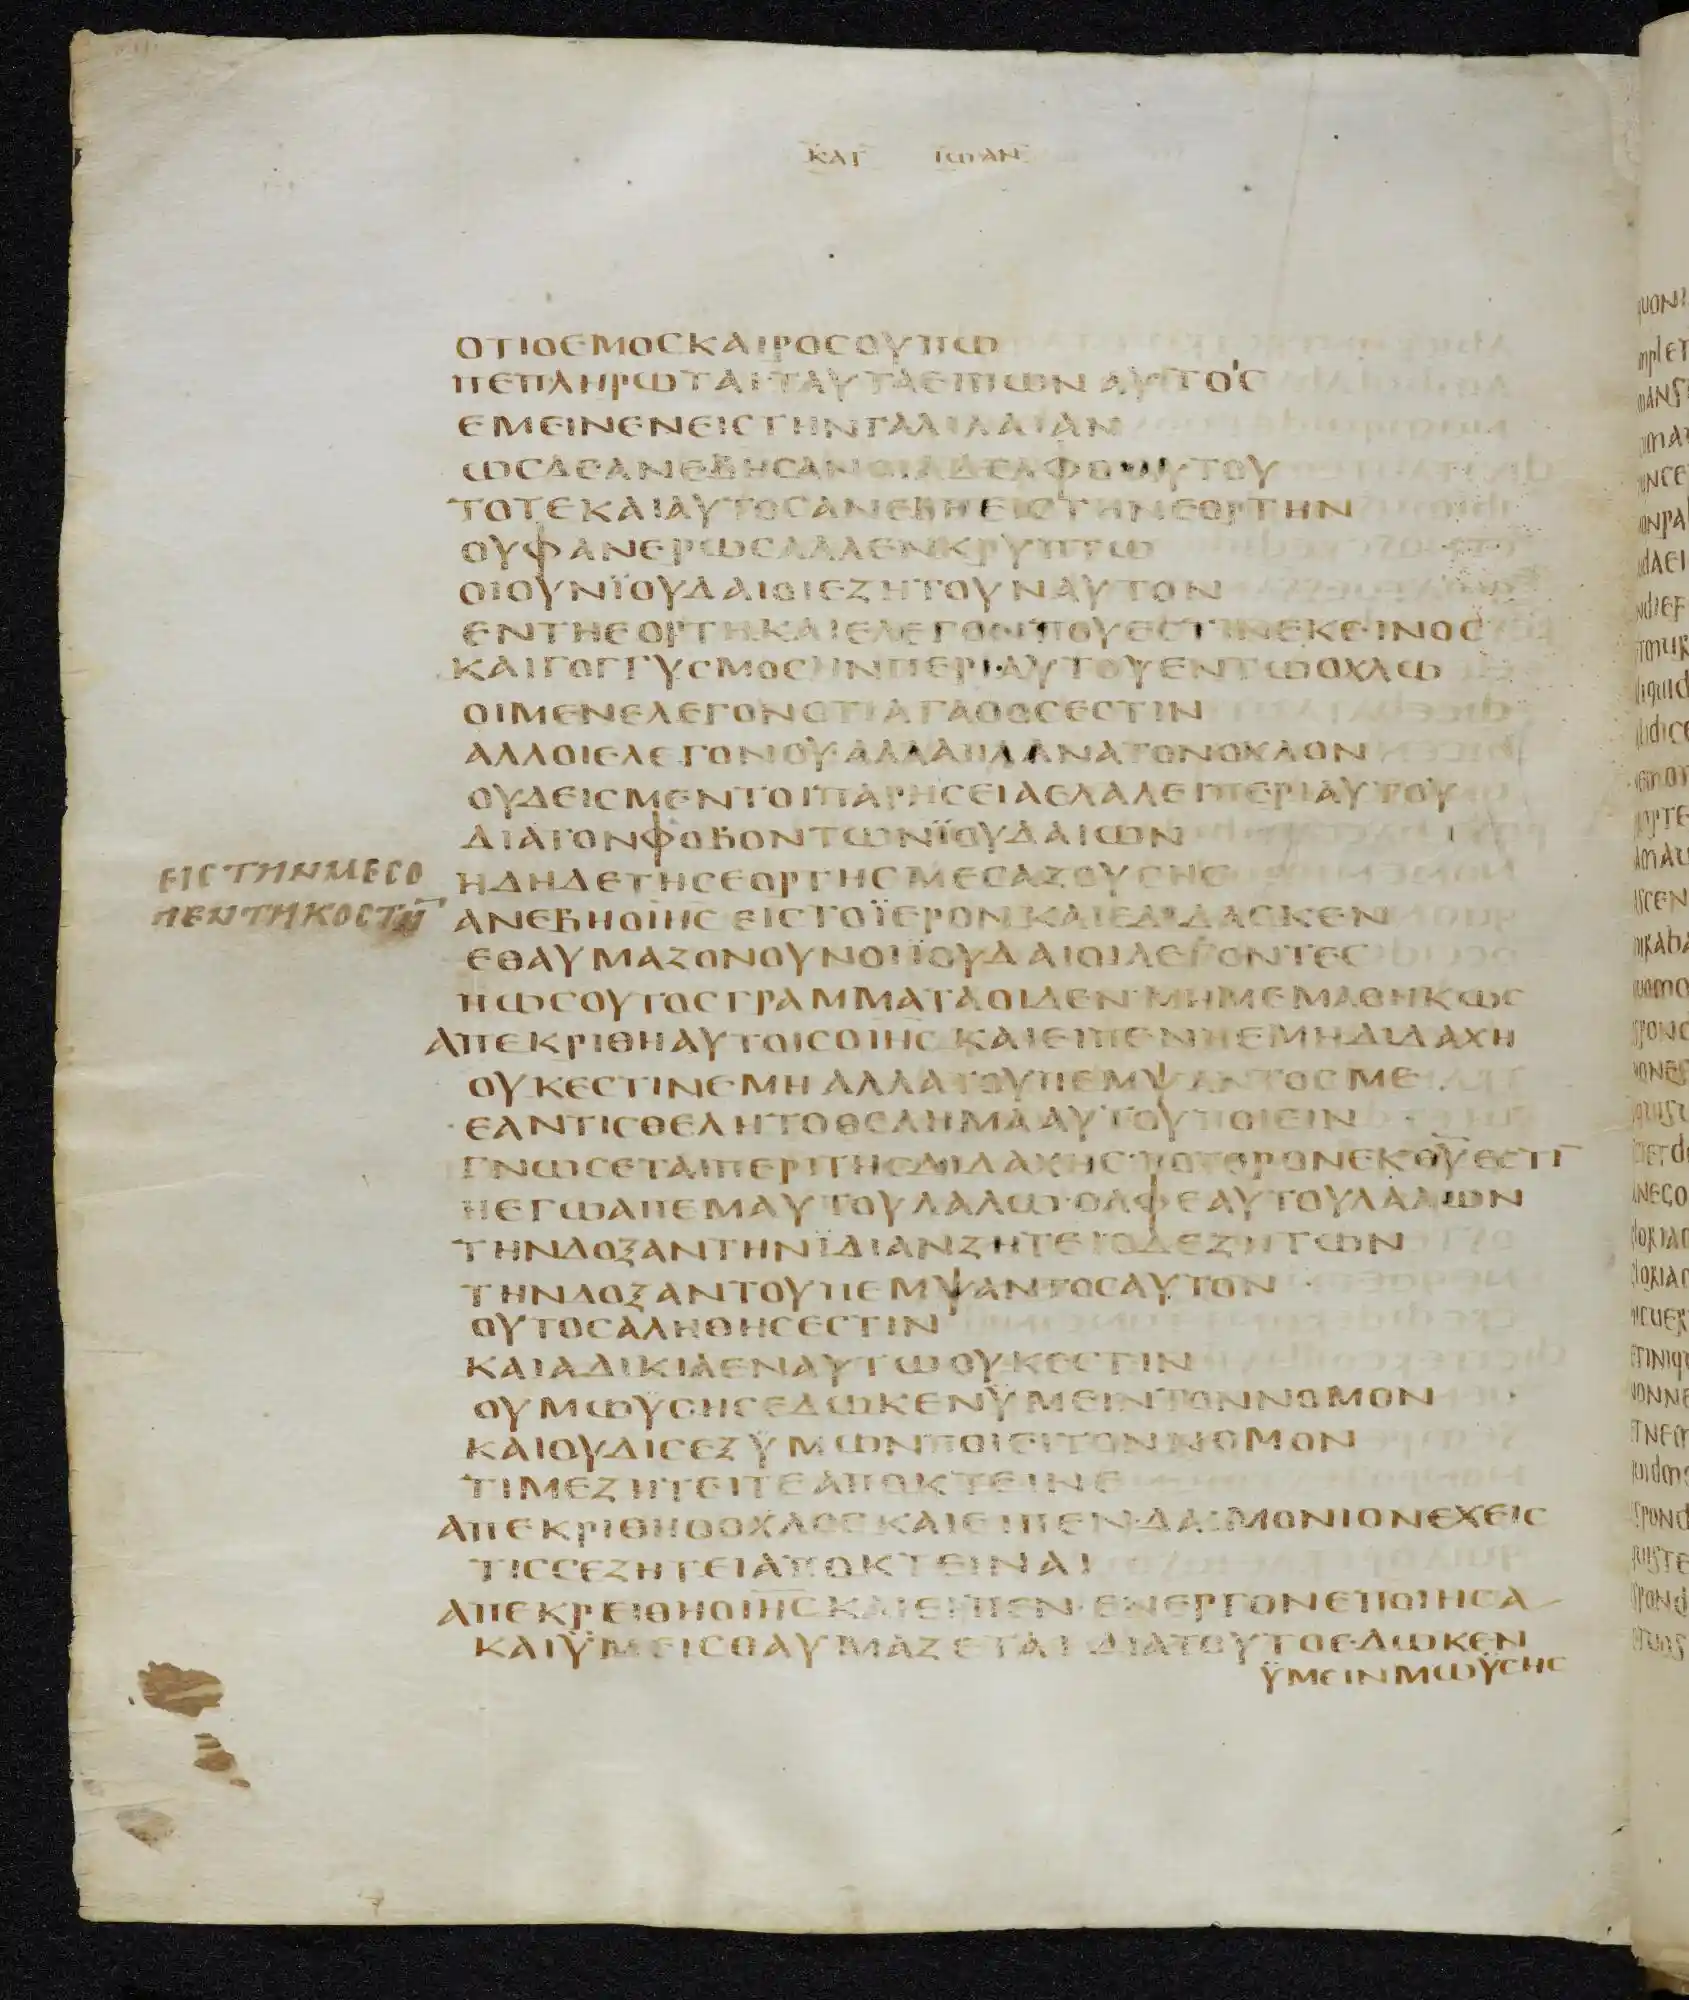 ΚΑΤ ΙΩΑΝ
ΟΤΙΟΕΜΟϹΚΑΙΡΟϹΟΥΠΩ
ΠΕΠΛΗΡΩΤΑΙ·ΤΑΥΤΑΕΙΠΩΝΑΥΤΟϹ
ΕΜΕΙΝΕΝΕΙϹΤΗΝΓΑΛΙΛΑΙΑΝ
ΩϹΔΕΑΝΕΒΗϹΑΝΟΙΑΔΕΛΦΟΙΑΥΤΟΥ
ΤΟΤΕΚΑΙΑΥΤΟϹΑΝΕΒΗΕΙϹΤΗΝΕΟΡΤΗΝ
ΟΥΦΑΝΕΡΩϹΑΛΛΑΕΝΚΡΥΠΤΩ
ΟΙΟΥΝΪΟΥΔΑΙΟΙΕΖΗΤΟΥΝΑΥΤΟΝ
ΕΝΤΗΕΟΡΤΗ·ΚΑΙΕΛΕΓΟΝ·ΠΟΥΕϹΤΙΝΕΚΕΙΝΟϹ
ΚΑΙΓΟΓΓΥϹΜΟϹΗΝΠΕΡΙ·ΑΥΤΟΥΕΝΤΩΟΧΛΩ
ΟΙΜΕΝΕΛΕΓΟΝΟΤΙΑΓΑΘΟϹΕϹΤΙΝ
ΑΛΛΟΙΕΛΕΓΟΝΟΥ·ΑΛΛΑΠΛΑΝΑΤΟΝΟΧΛΟΝ
ΟΥΔΕΙϹΜΕΝΤΟΙΠΑΡΗϹΕΙΑΕΛΑΛΕΙΠΕΡΙΑΥΤΟΥ
ΔΙΑΤΟΝΦΟΒΟΝΤΩΝΪΟΥΔΑΙΩΝ
ΕΙϹΤΗΝΜΕϹΟ
ΠΕΝΤΗΚΟϹΤΗ̅
ΗΔΗΔΕΤΗϹΕΟΡΤΗϹΜΕϹΑΖΟΥϹΗϹ
ΑΝΕΒΗΟΙΗϹ ΕΙϹΤΟΪΕΡΟΝ·ΚΑΙΕΔΙΔΑϹΚΕΝ
ΕΘΑΥΜΑΖΟΝΟΥΝΟΙΪΟΥΔΑΙΟΙΛΕΓΟΝΤΕϹ
ΠΩϹΟΥΤΟϹΓΡΑΜΜΑΤΑΟΙΔΕΝ·ΜΗΜΕΜΑΘΗΚΩϹ
ΑΠΕΚΡΙΘΗΑΥΤΟΙϹΟΙΗϹ ΚΑΙΕΙΠΕΝΗΕΜΗΔΙΔΑΧΗ
ΟΥΚΕϹΤΙΝΕΜΗΑΛΛΑΤΟΥΠΕΜΨΑΝΤΟϹΜΕ
ΕΑΝΤΙϹΘΕΛΗΤΟΘΕΛΗΜΑΑΥΤΟΥΠΟΙΕΙΝ
ΓΝΩϹΕΤΑΙΠΕΡΙΤΗϹΔΙΔΑΧΗϹ·ΠΟΤΕΡΟΝΕΚΘ̅Υ̅ΕϹΤΙ̅
ΗΕΓΩΑΠΕΜΑΥΤΟΥΛΑΛΩ·ΟΑΦΕΑΥΤΟΥΛΑΛΩΝ
ΤΗΝΔΟΞΑΝΤΗΝΪΔΙΑΝΖΗΤΕΙΟΔΕΖΗΤΩΝ
ΤΗΝΔΟΞΑΝΤΟΥΠΕΜΨΑΝΤΟϹΑΥΤΟΝ
ΟΥΤΟϹΑΛΗΘΗϹΕϹΤΙΝ
ΚΑΙΑΔΙΚΙΑΕΝΑΥΤΩΟΥΚΕϹΤΙΝ
ΟΥΜΩΥϹΗϹΕΔΩΚΕΝΫΜΕΙΝΤΟΝΝΟΜΟΝ
ΚΑΙΟΥΔΙϹΕΞΫΜΩΝΠΟΙΕΙΤΟΝΝΟΜΟΝ
ΤΙΜΕΖΗΤΕΙΤΕΑΠΟΚΤΕΙΝΕ
ΑΠΕΚΡΙΘΗΟΟΧΛΟϹΚΑΙΕΙΠΕΝ·ΔΑΙΜΟΝΙΟΝΕΧΕΙϹ
ΤΙϹϹΕΖΗΤΕΙΑΠΟΚΤΕΙΝΑΙ
ΑΠΕΚΡΕΙΘΗΟΙΗϹΚΑΙΕΙΠΕΝ·ΕΝΕΡΓΟΝΕΠΟΙΗϹΑ
ΚΑΙΫΜΕΙϹΘΑΥΜΑΖΕΤΑΙ·ΔΙΑΤΟΥΤΟΕΔΩΚΕΝ
ΫΜΕΙΝΜΩΫϹΗϹ